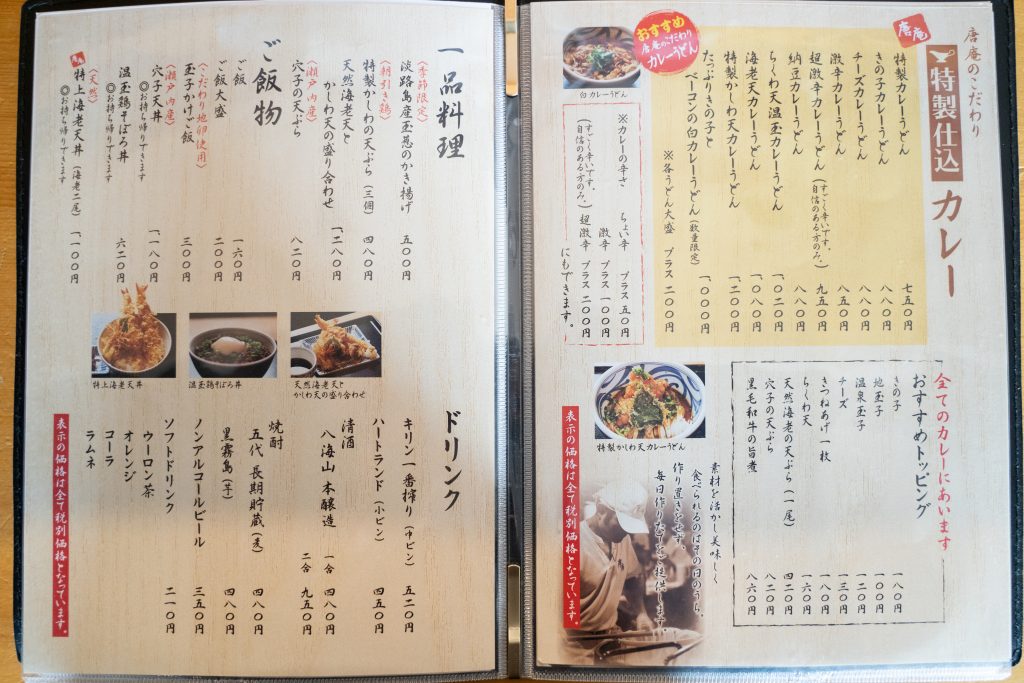 唐庵のこだわり
唐庵
特製仕込
カレー
特製カレーうどん 七五〇円
きの子カレーうどん 八八〇円
チーズカレーうどん 八八〇円
激辛カレーうどん 八五〇円
超激辛カレーうどん（すごく辛いです。自信のある方のみ。） 九五〇円
納豆カレーうどん 八八〇円
ちくわ天温玉カレーうどん 一、〇二〇円
海老天カレーうどん 一、〇八〇円
特製かしわ天カレーうどん 一、二〇〇円
たっぷりきの子と
ベーコンの白カレーうどん（数量限定） 一、〇〇〇円
※各うどん大盛 プラス 二〇〇円
おすすめ
唐庵のこだわり
カレーうどん
白カレーうどん
※カレーの辛さ
ちょい辛 プラス 五〇円
激辛 プラス 一〇〇円
超激辛 プラス 二〇〇円
（すごく辛いです。
自信のある方のみ。）
にもできます。
全てのカレーにあいます
おすすめトッピング
きの子 一八〇円
地玉子 一〇〇円
温泉玉子 一一〇円
チーズ 一三〇円
きつねあげ 一枚 一八〇円
ちくわ天 一六〇円
天然海老の天ぷら（一尾） 四二〇円
穴子の天ぷら 八二〇円
黒毛和牛の旨煮 八六〇円
特製かしわ天カレーうどん
素材を活かし美味しく
食べられるのはその日のうち。
作り置きをせず、
毎日作りたてをご提供します。
表示の価格は全て税別価格となっています。
一品料理
〈季節限定〉
淡路島産玉葱のかき揚げ 五〇〇円
〈朝引き鶏〉
特製かしわの天ぷら（三個） 四八〇円
天然海老天と
かしわ天の盛り合わせ 一、二八〇円
〈瀬戸内産〉
穴子の天ぷら 八二〇円
ご飯物
ご飯 一六〇円
ご飯大盛 二〇〇円
〈こだわり地卵使用〉
玉子かけご飯 三〇〇円
〈瀬戸内産〉
穴子天丼 一、一八〇円
◎お持ち帰りできます
温玉鶏そぼろ丼 六二〇円
◎お持ち帰りできます
〈天然〉
特上海老天丼（海老二尾） 一、一八〇円
◎お持ち帰りできます
特上海老天丼
温玉鶏そぼろ丼
天然海老天と
かしわ天の盛り合わせ
ドリンク
キリン一番搾り（中ビン） 五二〇円
ハートランド（小ビン） 四五〇円
清酒
八海山 本醸造 一合 四八〇円
二合 九五〇円
焼酎
五代 長期貯蔵（麦） 四八〇円
黒霧島（芋） 四八〇円
ノンアルコールビール 三五〇円
ソフトドリンク 二一〇円
ウーロン茶
オレンジ
コーラ
ラムネ
表示の価格は全て税別価格となっています。